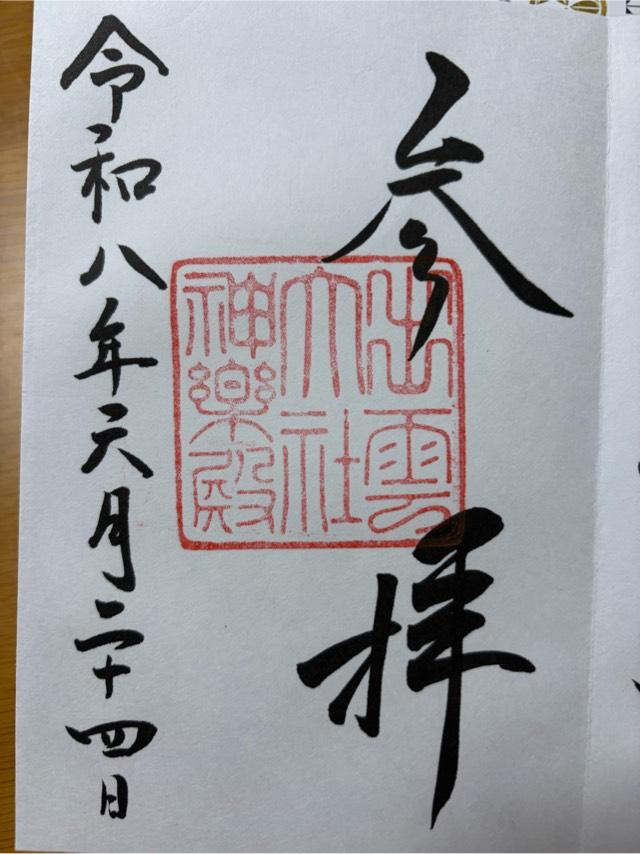 参拝
出雲
大社
神樂殿
令和八年六月二十四日